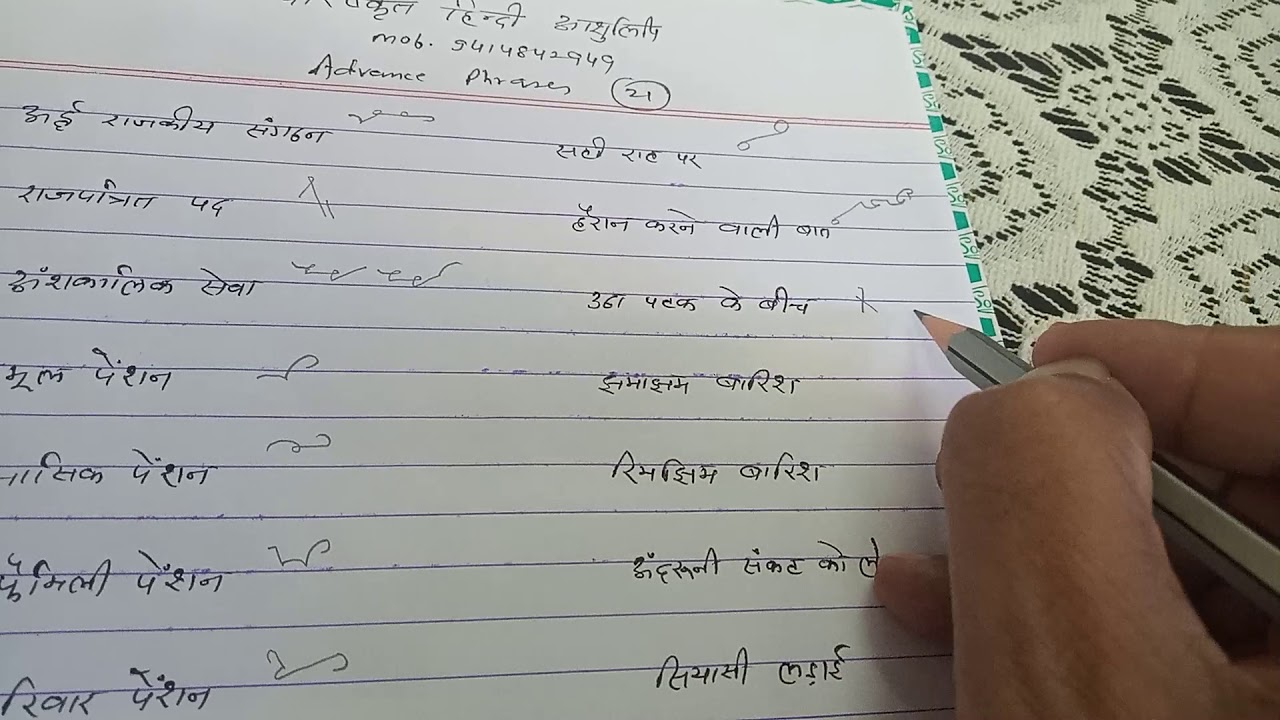 हिन्दी आशुलिपि
mob. 9414842949
Advance Phrases (21)
अर्द्ध राजकीय संगठन
सही राह पर
राजपत्रित पद
हैरान करने वाली बात
अंशकालिक सेवा
उठा पटक के बीच
मूल पेंशन
झमाझम बारिश
पेंशन
रिमझिम बारिश
फैमिली पेंशन
अंदरूनी संकट को
पेंशन
सियासी लड़ाई